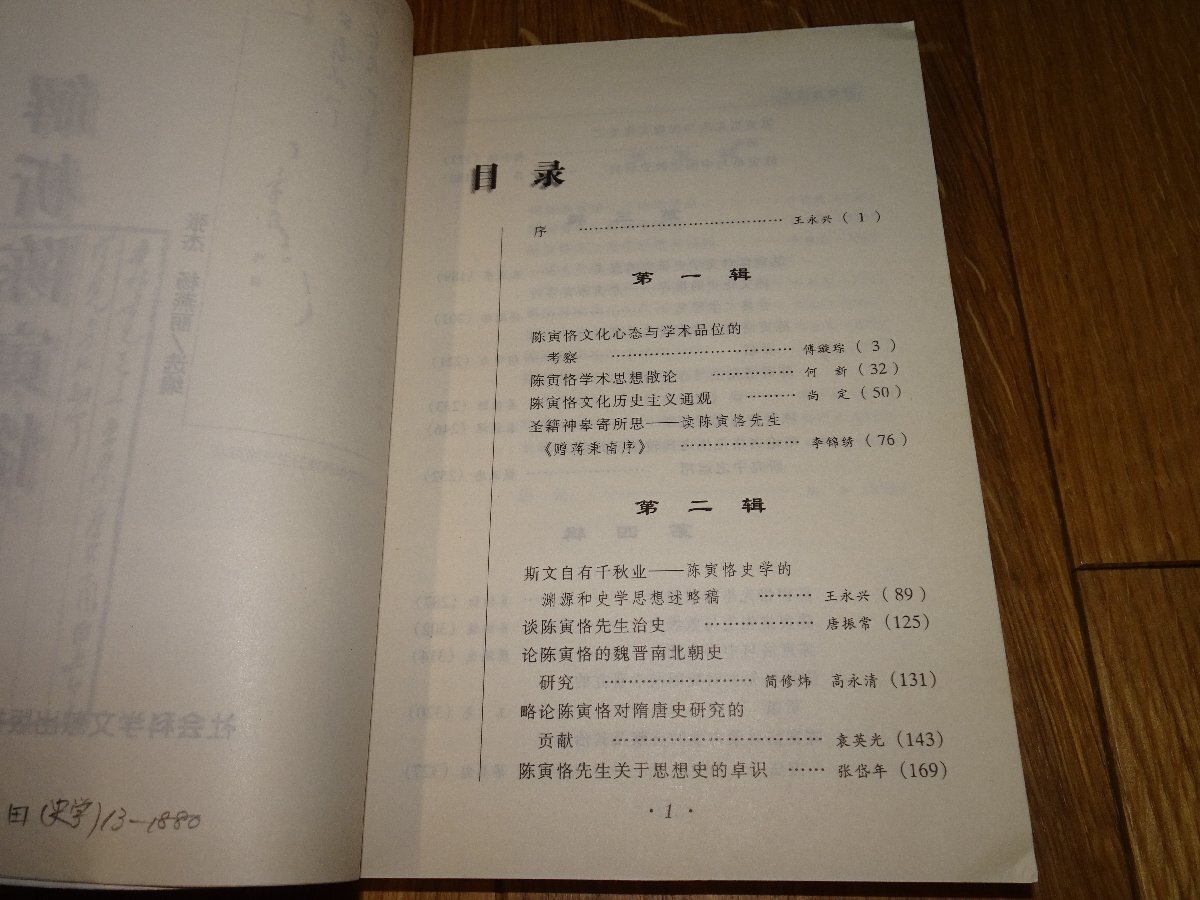 解析陈寅恪
张杰 杨燕丽／选编
社会科学文献出版社
田(史学)13-1880
目 录
序 …………………………… 王永兴 ( 1 )
第 一 辑
陈寅恪文化心态与学术品位的
考察 …………………………… 傅璇琮 ( 3 )
陈寅恪学术思想散论 …………… 何 新 ( 32 )
陈寅恪文化历史主义通观 ……… 尚 定 ( 50 )
圣籍神皋寄所思——读陈寅恪先生
《赠蒋秉南序》 ………………… 李锦绣 ( 76 )
第 二 辑
斯文自有千秋业——陈寅恪史学的
渊源和史学思想述略稿 ……… 王永兴 ( 89 )
谈陈寅恪先生治史 ……………… 唐振常 (125)
论陈寅恪的魏晋南北朝史
研究 …………………… 简修炜 高永清 (131)
略论陈寅恪对隋唐史研究的
贡献 ……………………………… 袁英光 (143)
陈寅恪先生关于思想史的卓识 …… 张岱年 (169)
· 1 ·